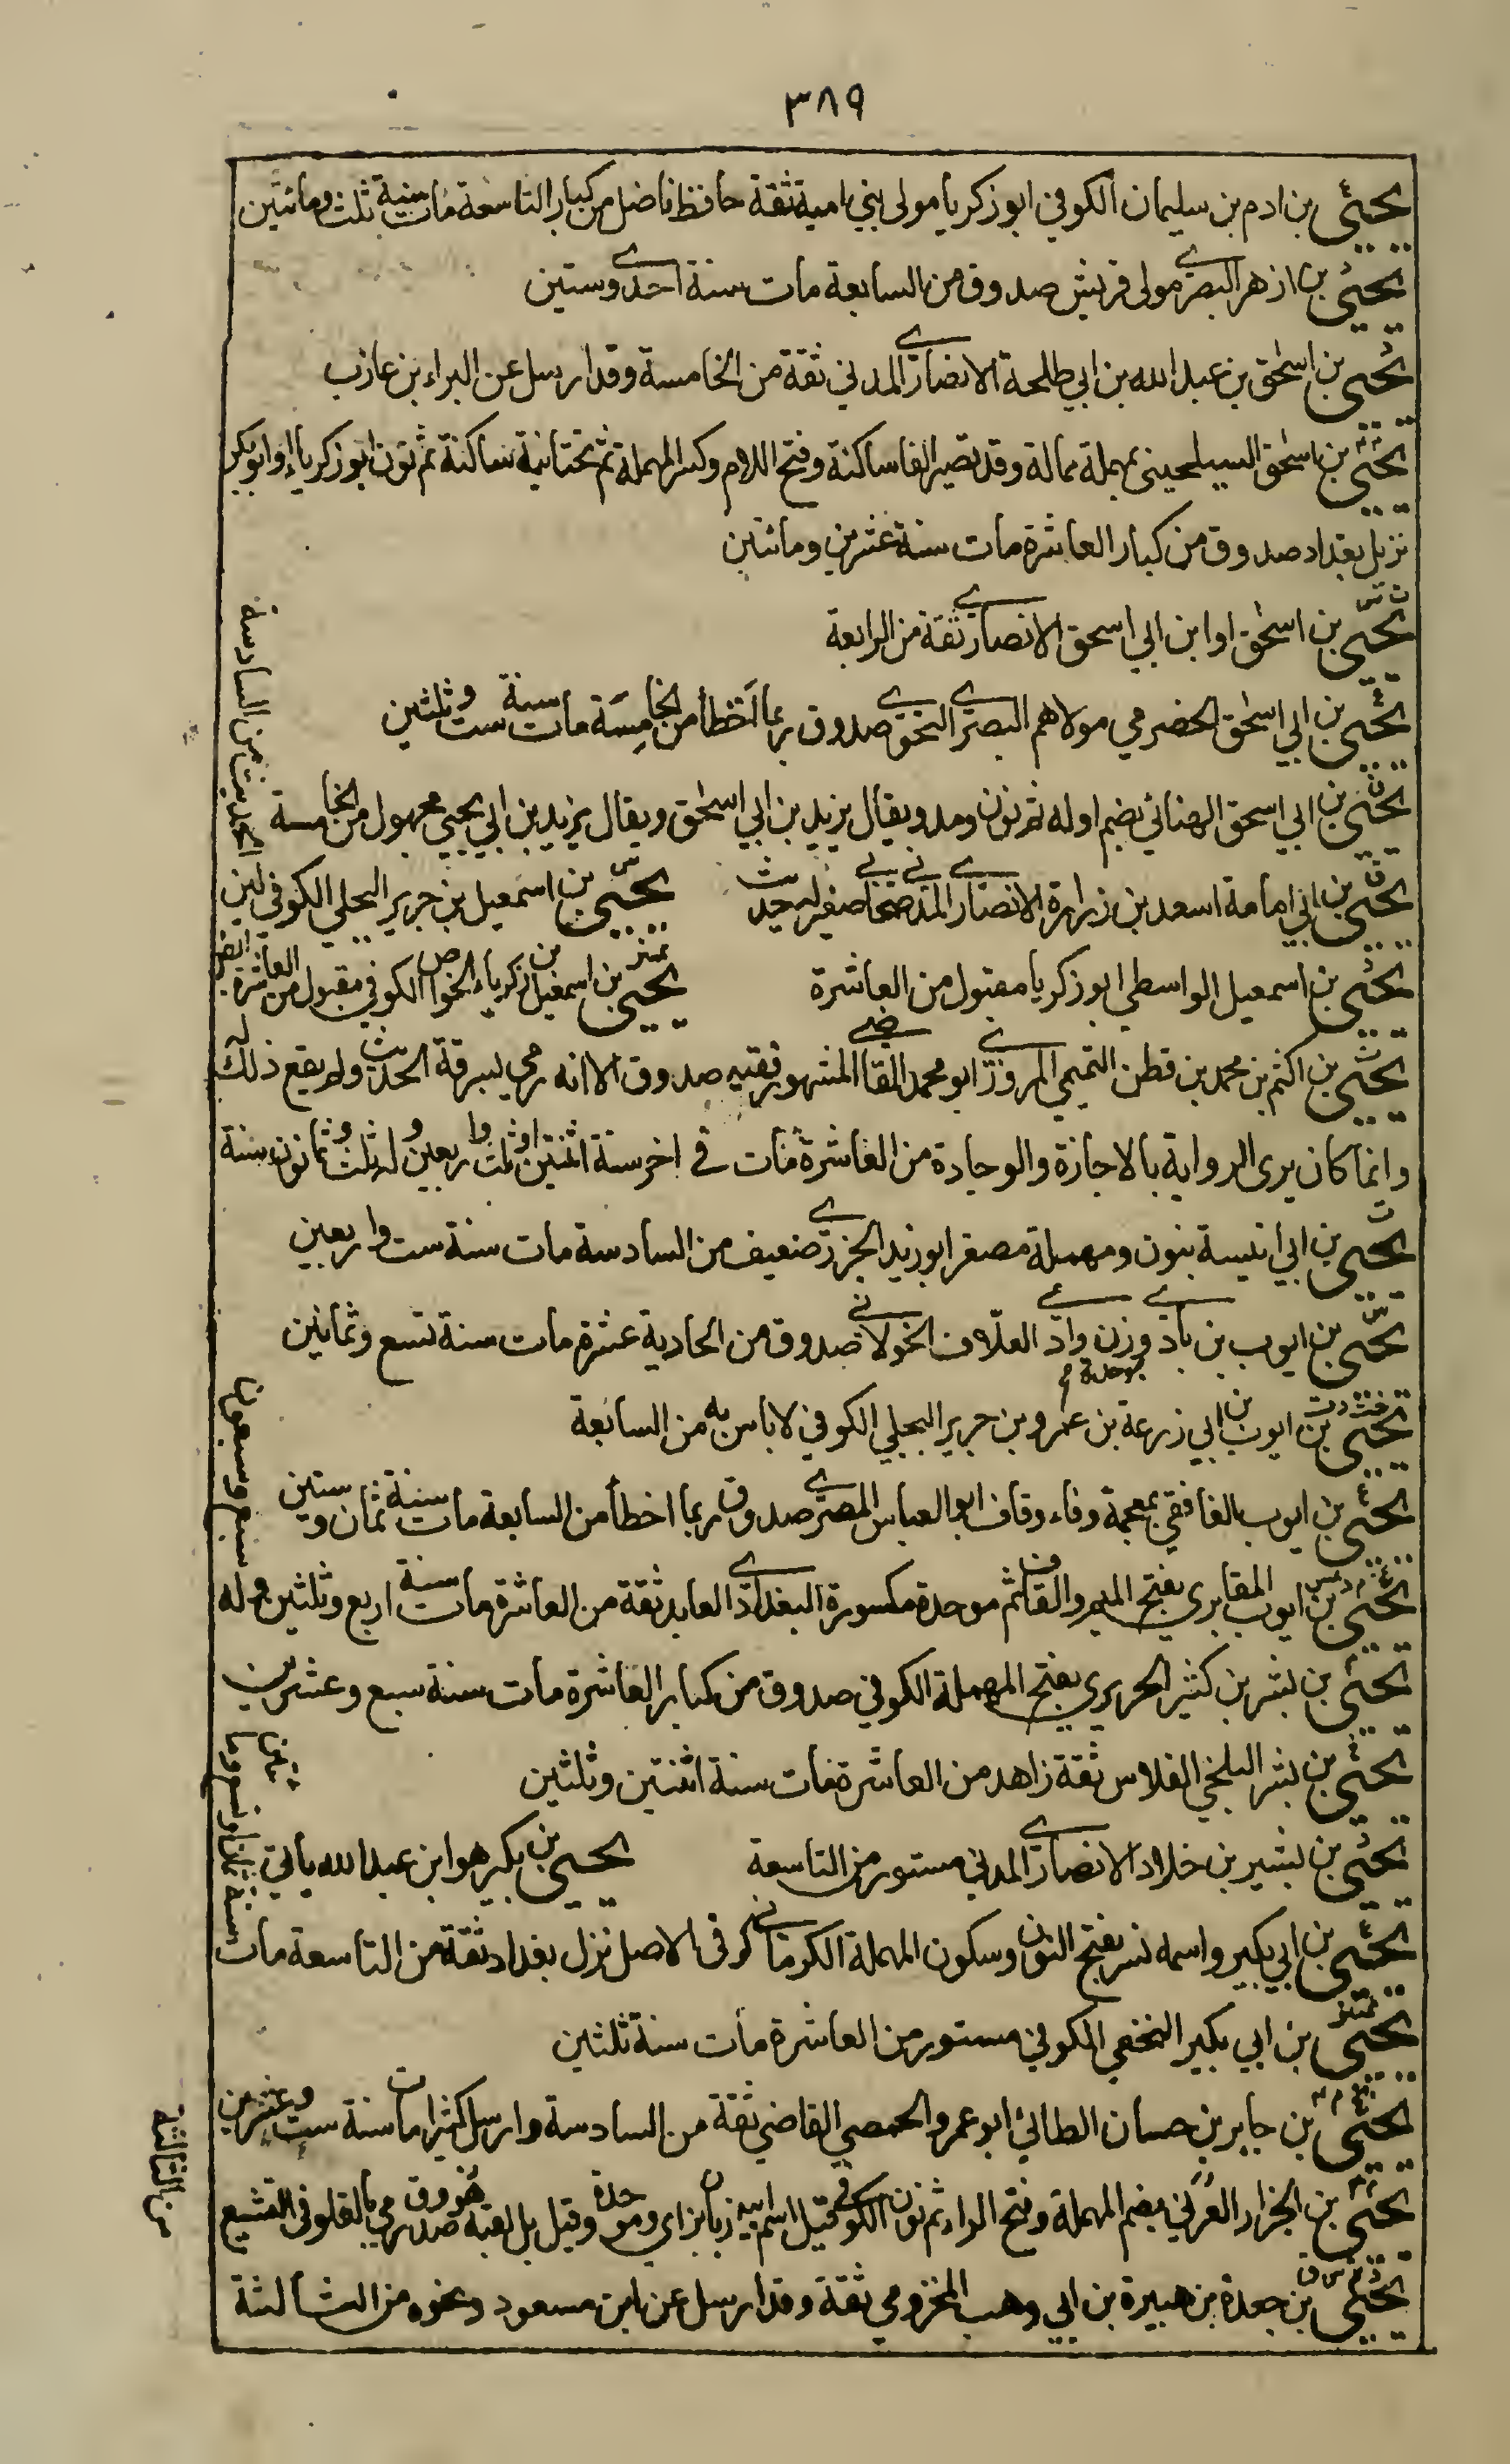 ٣٨٩
يحيى بن ادم بن سليمان الكوفي ابو زكريا مولى بني امية ثقة حافظ فاضل من كبار التاسعة مات سنة ثلث ومائتين
يحيى بن ازهر البصري مولى قريش صدوق من السابعة مات سنة احدى وستين
يحيى بن اسحق بن عبد الله بن ابي طلحة الانصاري المدني ثقة من الخامسة وقد ارسل عن البراء بن عازب
يحيى بن اسحق السيلحيني بمهملة ممالة وقد تصير الفا ساكنة وفتح اللام وكسر المهملة ثم تحتانية ساكنة ثم نون ابو زكريا او ابو بكر
نزيل بغداد صدوق من كبار العاشرة مات سنة عشرين ومائتين
يحيى بن اسحق او ابن ابي اسحق الانصاري ثقة من الرابعة
يحيى بن ابي اسحق الحضرمي مولاهم البصري النحوي صدوق ربما اخطأ من الخامسة مات سنة ست وثلثين
يحيى بن ابي اسحق الهنائي بضم اوله ثم نون ومد ويقال يزيد بن ابي اسحق ويقال يزيد بن ابي يحيى مجهول من الخامسة
يحيى بن ابي امامة اسعد بن زرارة الانصاري المدني صحابي صغير له حديث يحيى بن اسمعيل بن جرير البجلي الكوفي لين
الحديث من السادسة
يحيى بن اسمعيل الواسطي ابو زكريا مقبول من العاشرة يحيى بن اسمعيل بن زكرياء الخواص الكوفي مقبول من العاشرة ايضا
يحيى بن اكثم بن محمد بن قطن التميمي المروزي ابو محمد القاضي المشهور فقيه صدوق الا انه رمي بسرقة الحديث ولم يقع ذلك له
وانما كان يرى الرواية بالاجازة والوجادة من العاشرة مات في اخر سنة اثنتين او ثلث واربعين وله ثلث وثمانون سنة
يحيى بن ابي انيسة بنون ومهملة مصغر ابو زيد الجزري ضعيف من السادسة مات سنة ست واربعين
يحيى بن ايوب بن بادي وزن وادي العلاف الخولاني صدوق من الحادية عشرة مات سنة تسع وثمانين
بموحدة
يحيى بن ايوب بن ابي زرعة بن عمرو بن جرير البجلي الكوفي لا باس به من السابعة
يحيى بن ايوب الغافقي بمعجمة وفاء وقاف ابو العباس المصري صدوق ربما اخطأ من السابعة مات سنة ثمان وستين
يحيى بن ايوب المقابري بفتح الميم والقاف ثم موحدة مكسورة البغدادي العابد ثقة من العاشرة مات سنة اربع وثلثين وله
سبع وسبعون
يحيى بن بشر بن كثير الحريري بفتح المهملة الكوفي صدوق من كبار العاشرة مات سنة سبع وعشرين
يحيى بن بشر البلخي الفلاس ثقة زاهد من العاشرة مات سنة اثنتين وثلثين
يحيى بن بشير بن خلاد الانصاري المدني مستور من التاسعة يحيى بن بكير هو ابن عبد الله ياتي
يحيى بن ابي بكير واسمه نسر بفتح النون وسكون المهملة الكرماني كوفي الاصل نزل بغداد ثقة من التاسعة مات
سنة ثمان او تسع ومائتين
يحيى بن ابي بكير النخعي الكوفي مستور من العاشرة مات سنة ثلثين
يحيى بن جابر بن حسان الطائي ابو عمرو الحمصي القاضي ثقة من السادسة وارسل كثيرا مات سنة ست وعشرين
يحيى بن الجزار العرني بضم المهملة وفتح الراء ثم نون الكوفي قيل اسم ابيه زبان بزاي وموحدة وقيل بل لقبه هو صدوق رمي بالغلو في التشيع
من الثالثة
يحيى بن جعدة بن هبيرة بن ابي وهب المخزومي ثقة وقد ارسل عن ابن مسعود ونحوه من الثالثة